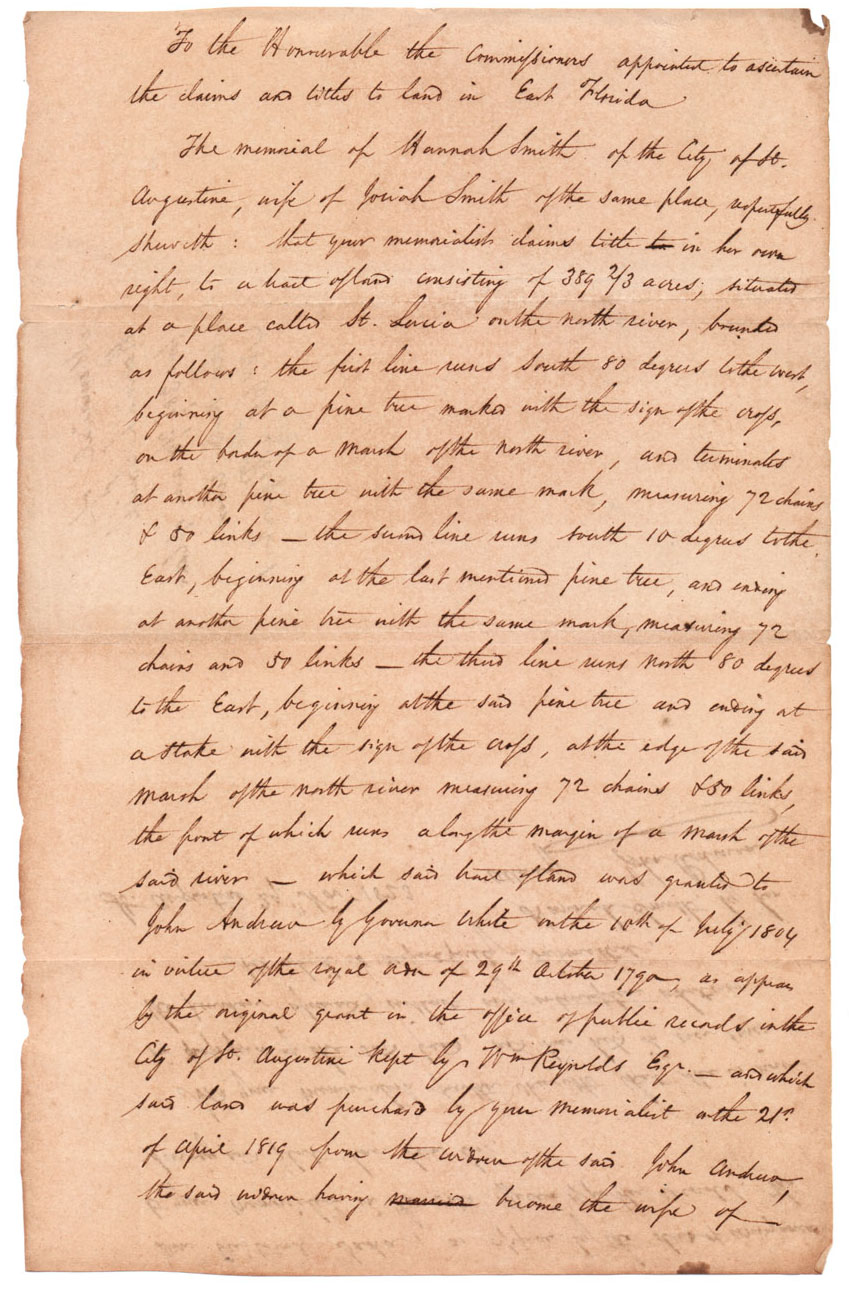 To the Honourable the Commissioners appointed to ascertain
the claims and titles to land in East Florida
The memorial of Hannah Smith of the City of St.
Augustine, wife of Josiah Smith of the same place, respectfully
sheweth: that your memorialist claims title to in her own
right, to a tract of land consisting of 389 2/3 acres; situated
at a place called St. Lucia on the north river, bounded
as follows: the first line runs South 80 degrees to the west,
beginning at a pine tree marked with the sign of the cross,
on the border of a Marsh of the north river, and terminates
at another pine tree with the same mark, measuring 72 chains
& 50 links — the second line runs south 10 degrees to the
East, beginning at the last mentioned pine tree, and ending
at another pine tree with the same mark, measuring 72
chains and 50 links — the third line runs North 80 degrees
to the East, beginning at the said pine tree and ending at
a stake with the sign of the cross, at the edge of the said
Marsh of the north river measuring 72 chains & 50 links,
the front of which runs along the margin of a Marsh of the
said river — which said tract of land was granted to
John Andrew by Governor White on the 10th of July 1804
in virtue of the royal order of 29th October 1790, as appears
by the original grant in the office of public records in the
City of St. Augustine kept by Wm Reynolds Esqr. — and which
said land was purchased by your memorialist on the 21st
of april 1819 from the widow of the said John Andrew,
the said widow having married become the wife of —